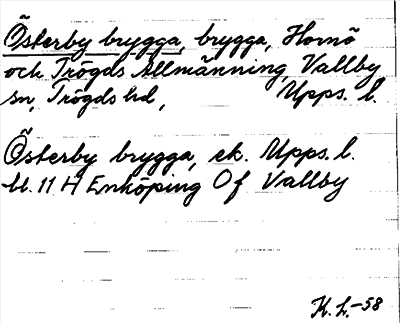 Österby brygga, brygga, Hornö
och Trögds Allmänning, Vallby
sn, Trögds hd, Upps. l.
Österby brygga, ek. Upps. l.
bl. 11 H Enköping Of Vallby
K. L. -58